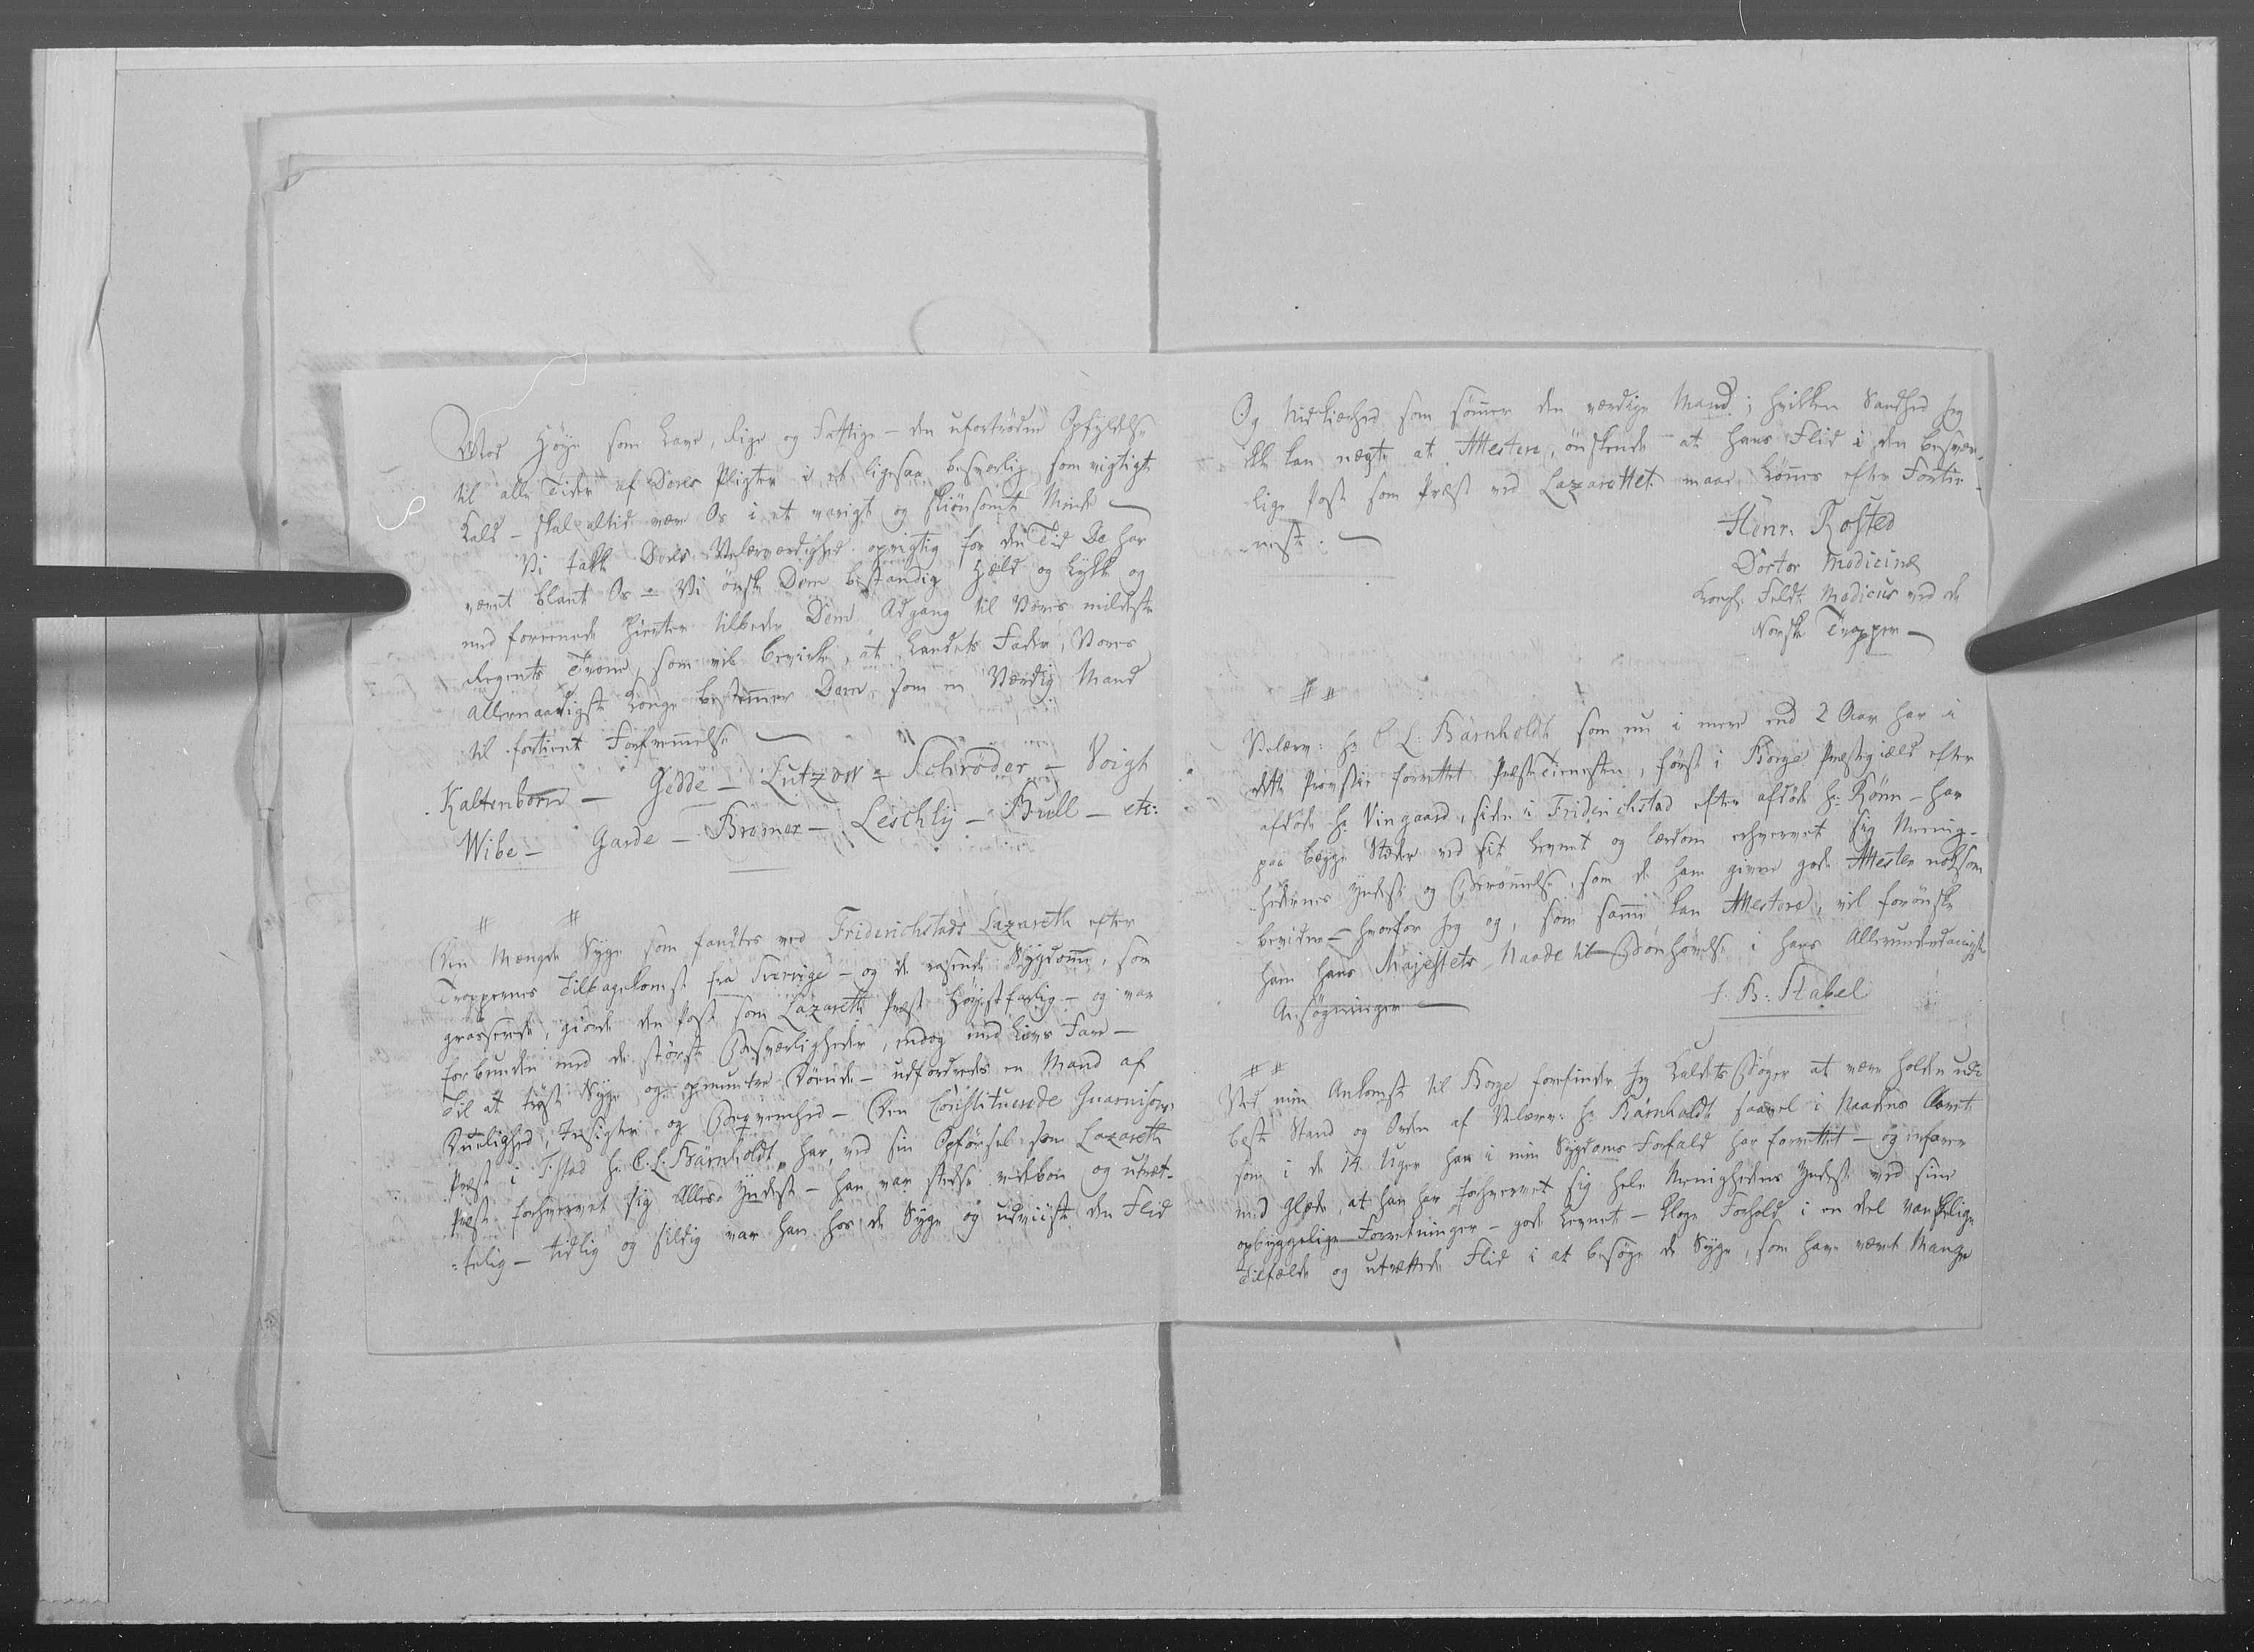 Mod Høye som Lave, Rige og Fattige – den ufortrødne Opfyldelse
til alle Tider af Deres Pligter i et ligesaa besværlig som vigtigt
Kald – skal altid være Os i et varigt og skiønsomt Minde
Vi takke Deres Velærværdighed oprigtig for den Tid De har
været blant Os – Vi ønske Dem bestandig Held og Lykke og
med forenede Hierter tilbede Dem Adgang til Vores mildeste
Regents Trone, som vil bevirke, at Landets Fader, Vores
Allernaadigste Konge bestemmer Dem, som en Værdig Mand
til fortient Forfremmelse
Kaltenborn – Gedde – Lutzow – Schrøder – Voigt
Wibe – Garde – Bremer – Leschly – Bull – etc:
# #
Den Mængde Syge som fandtes ved Friderichstads Lazareth efter
Troppernes Tilbagekomst fra Sverrige – og de rasende Sygdomme, som
grasserede, giorde den Post som Lazareth Præst Høyst farlig – og var
forbunden med de største Besværligheder, endog med Livs Fare –
Til at trøste Syge og opmuntre Døende – udfordredes en Mand af
Duelighed, Indsigter og Beqvemhed – Den Constituerede Guarnisons
Præst i F:stad Hr C. L. Bärnholdt, har, ved sin Opførsel som Lazareth
Præst forhvervet sig Alles Yndest – han var stedse redebon og utræt-
=telig – tidlig og sildig var han hos de Syge og udviiste den Flid
Og Nidkiærhed som sømmer den værdige Mand; hvilken Sandhed Jeg
ikke kan nægte at Attestere, ønskende at hans Flid i den besvær-
lige Post som Præst ved Lazarettet maae Lønnes efter Fortie-
-neste.
Henr: Rosted
Doctor Medicinæ
Kongl. Feldt Medicus ved de
Norske Tropper –
# #
Velærv: Hr C. L. Bärnholdt som nu i mere end 2 Aar har i
dette Provstie forrettet Præste Tienesten, først i Borge Præstegield efter
afdøde Hr Vingaard, siden i Friderichstad efter afdøde Hr Rønn – har
paa begge Stæder ved sit Levnet og Lærdom erhvervet sig Menig-
hedernes Yndest og Berømmelse, som de ham givne gode Attester noksom
beviidne – hvorfor Jeg og, som samme kan Attestere, vil forønske
ham Hans Majestets Naade til Bønhørelse i hans Allerunderdanigste
Ansøgninger –
J. B: Stabel
# #
Ved min Ankomst til Borge forefinder Jeg Kaldets Bøger at være holden udi
beste Stand og Orden af Velærv: Hr Bärnholdt saavel i Naadens Aaret
som i de 14 Uger han i min Sygdoms Forfald har forrettet – og erfarer
med Glæde, at han har forhvervet sig hele Menighedens Yndest ved sine
opbyggelige Forretninger – gode Levnet – kloge Forhold i en deel vanskelige
Tilfælde og utrættede Flid i at besøge de Syge, som have været Mange